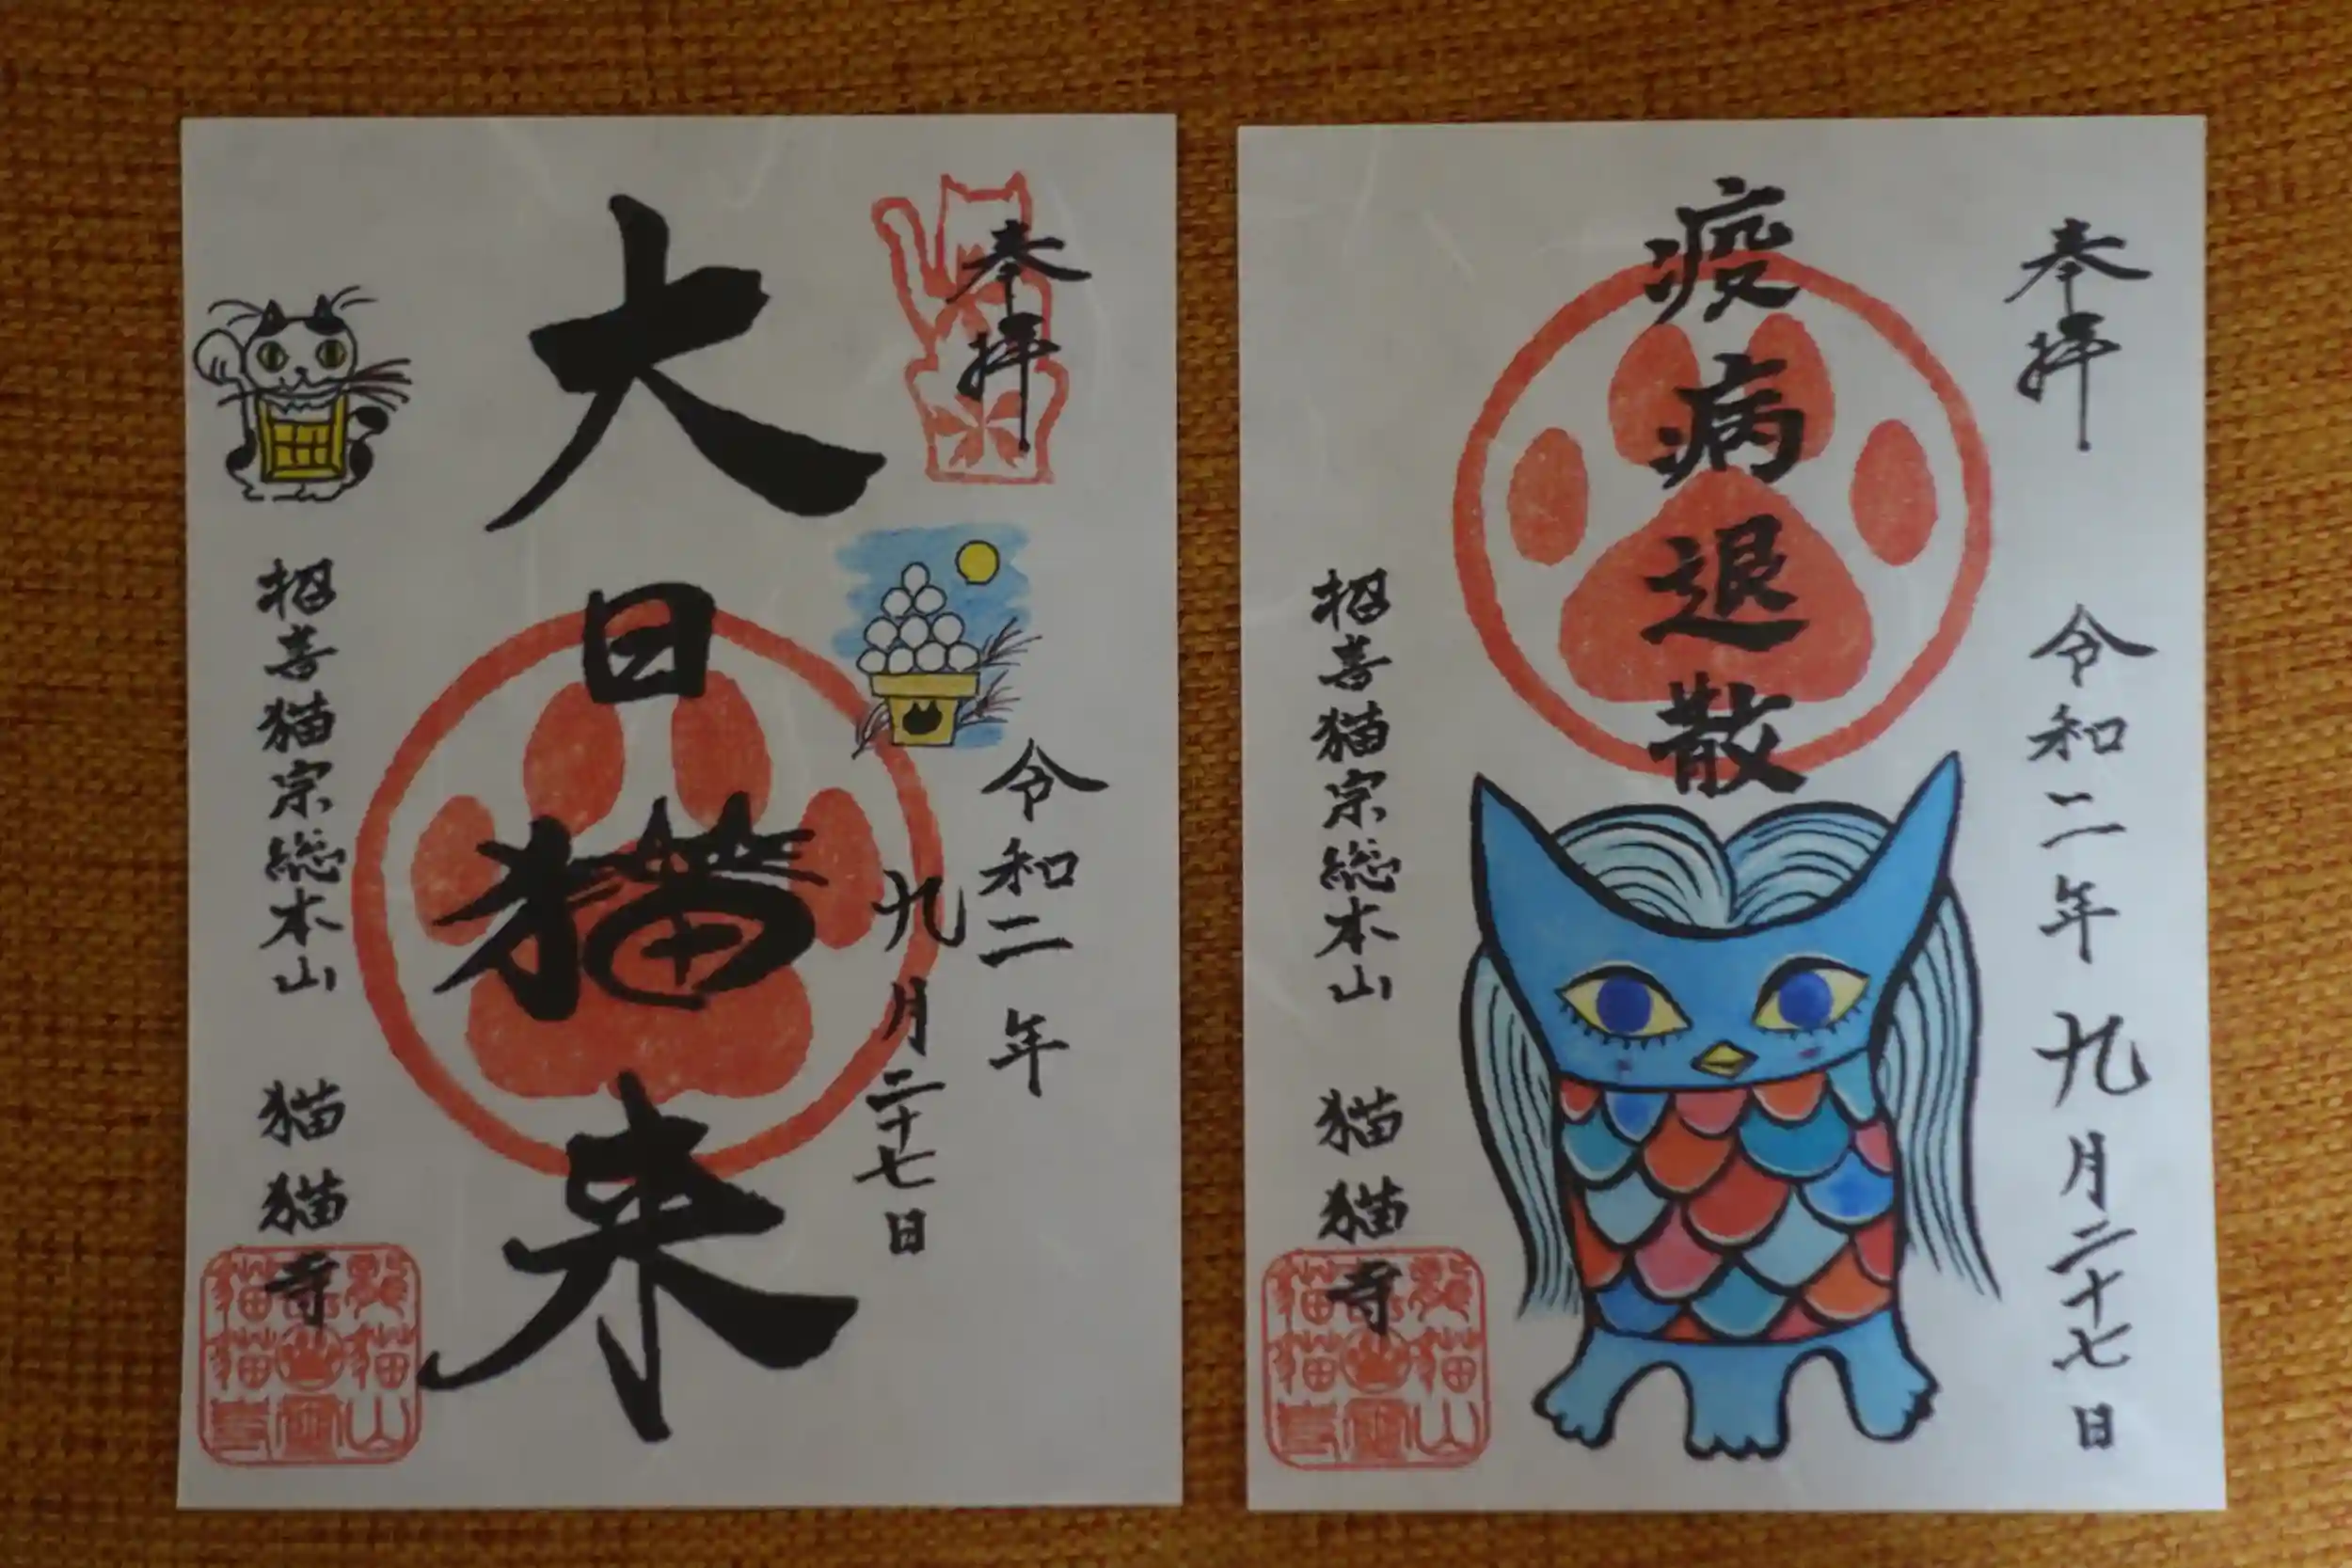 奉拝
大日猫来
令和二年
九月二十七日
招喜猫宗総本山 猫猫寺
奉拝
令和二年九月二十七日
疫病退散
招喜猫宗総本山 猫猫寺